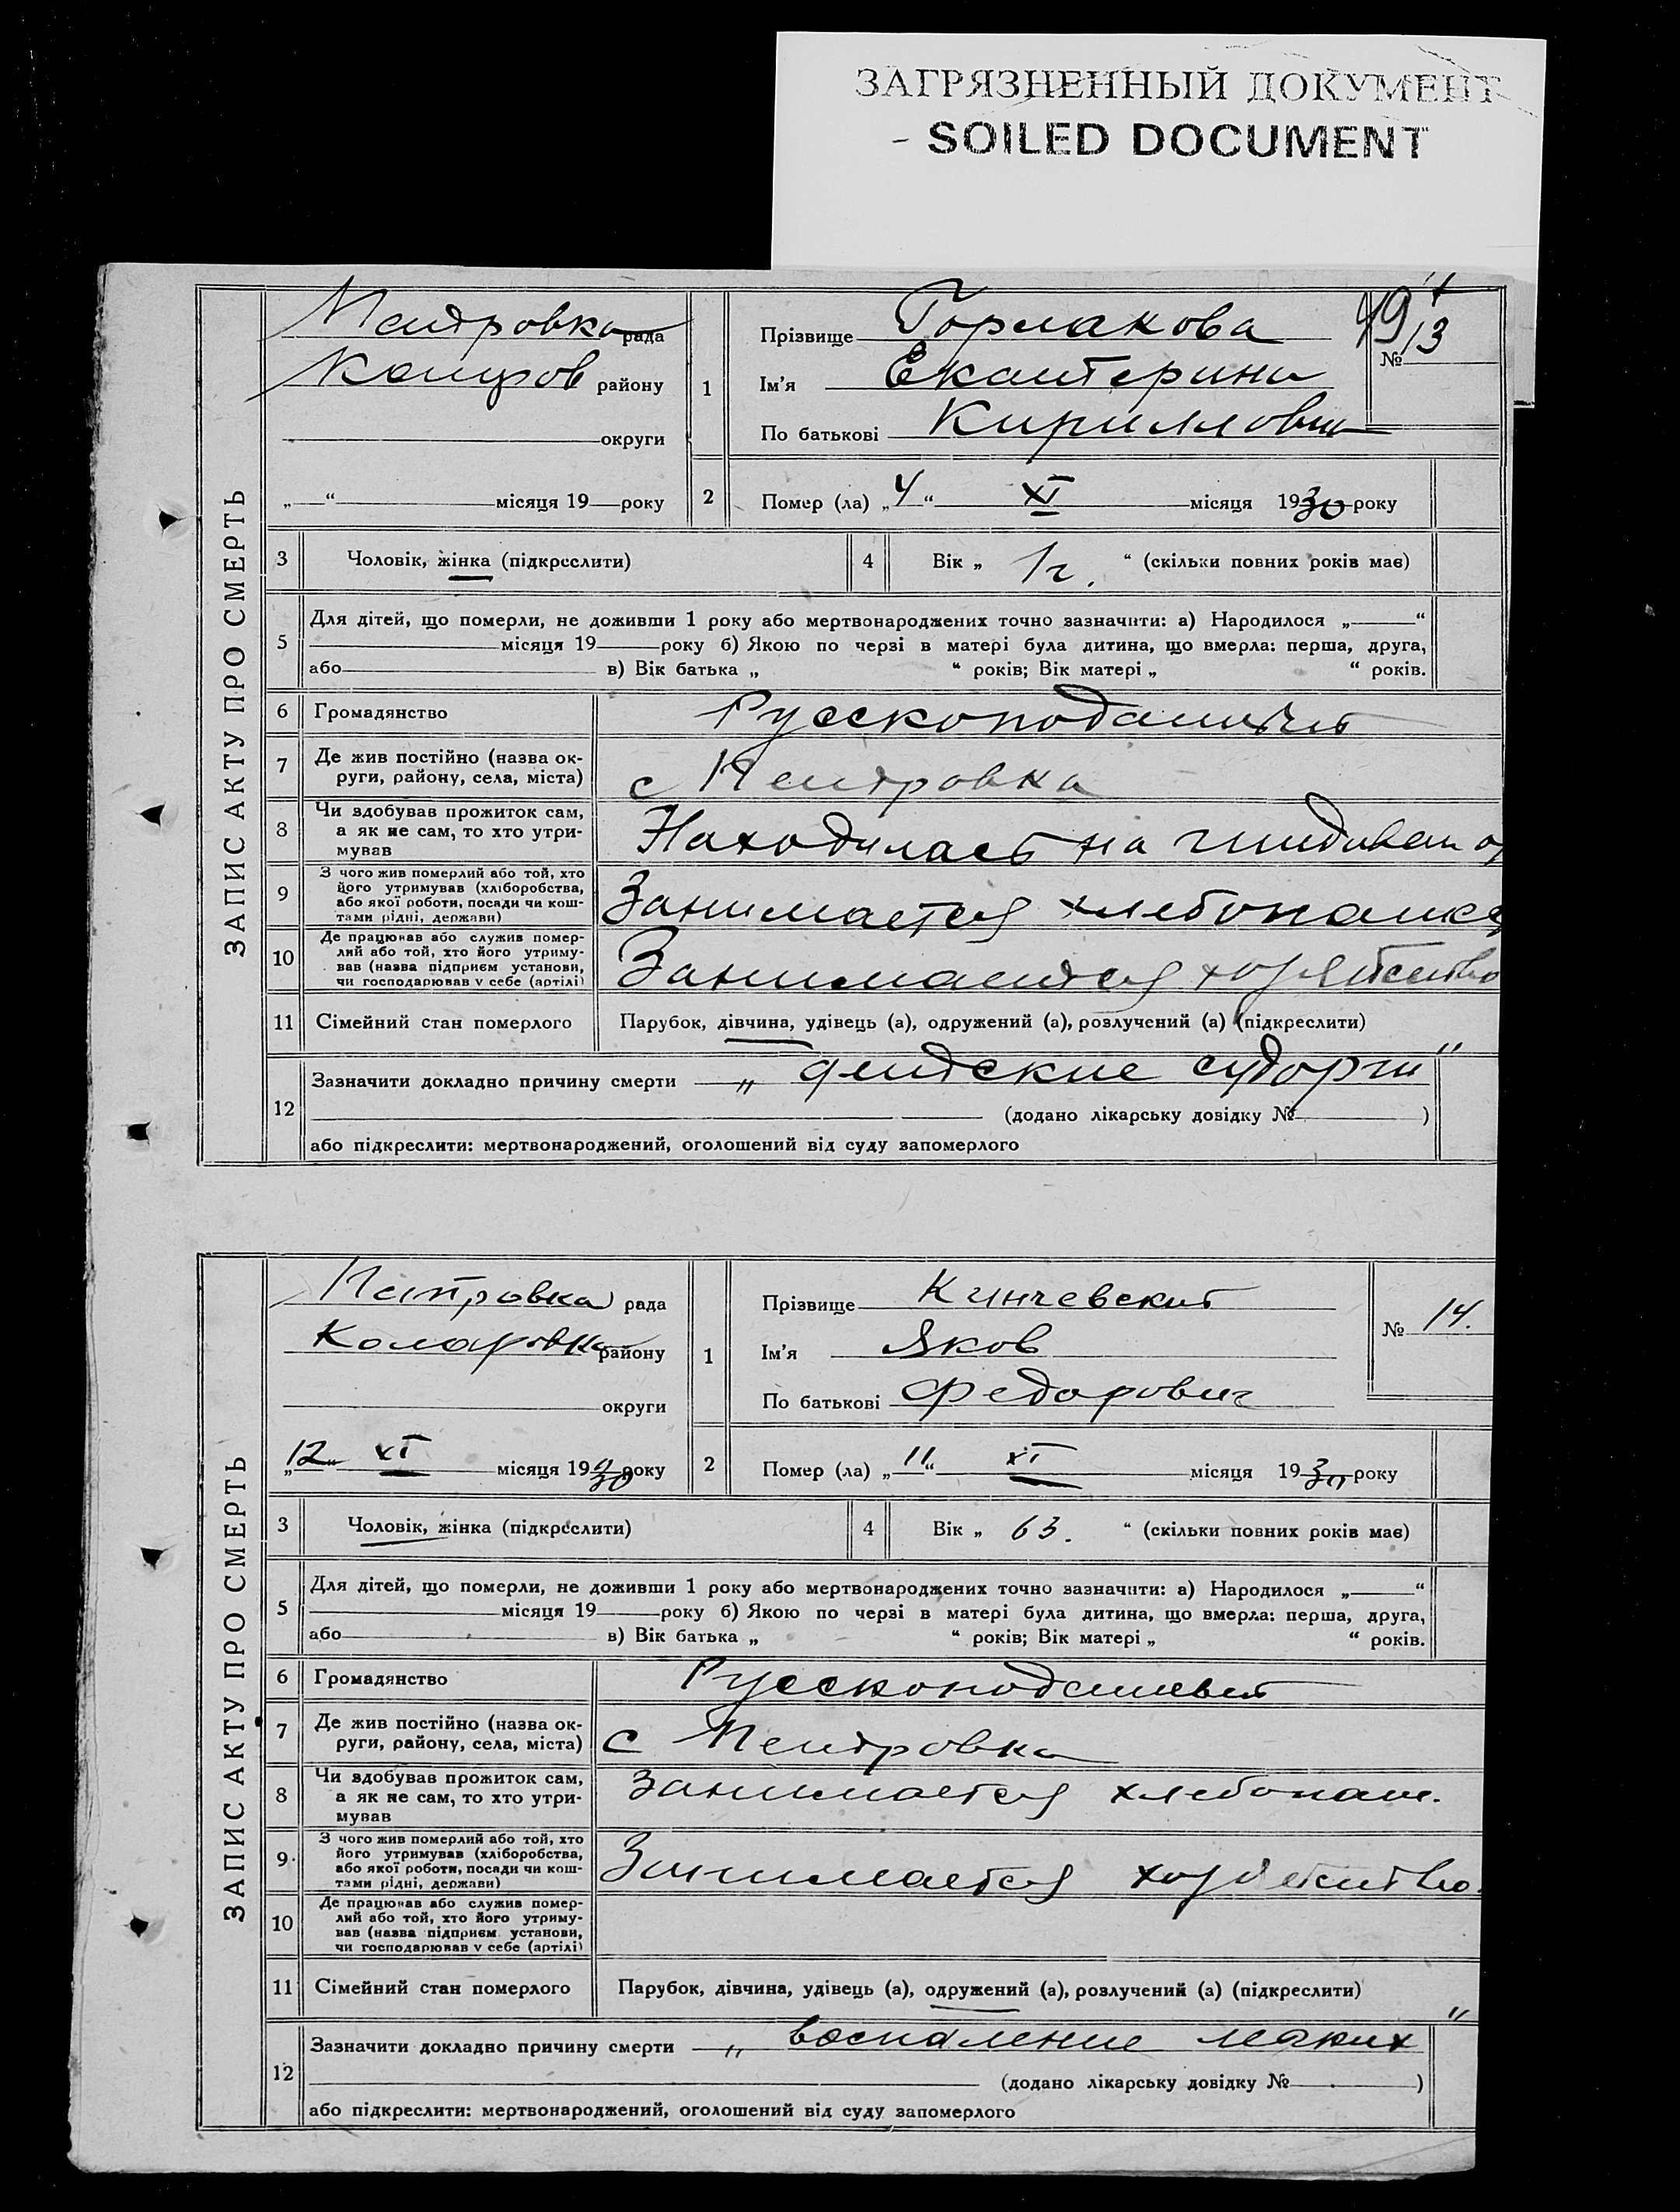 ЗАГРЯЗНЕННЫЙ ДОКУМЕНТ
- SOILED DOCUMENT
ЗАПИС АКТУ ПРО СМЕРТЬ
рада
району
округи
„ “ місяця 19 року
1
Прізвище
Ім'я Екатерина
По батькові Кирилловна
49
№ 13
2
Помер (ла) „4“ XI місяця 1930 року
3
Чоловік, жінка (підкреслити)
4
Вік „ 1 г. “ (скільки повних років має)
5
Для дітей, що померли, не доживши 1 року або мертвонароджених точно зазначити: а) Народилося „ “
місяця 19 року б) Якою по черзі в матері була дитина, що вмерла: перша, друга,
або в) Вік батька „ “ років; Вік матері „ “ років.
6
Громадянство
7
Де жив постійно (назва ок-
руги, району, села, міста)
с
8
Чи здобував прожиток сам,
а як не сам, то хто утри-
мував
Находилась на
9
З чого жив померлий або той, хто
його утримував (хліборобства,
або якої роботи, посади чи кош-
тами рідні, держави)
Занимается
10
Де працював або служив помер-
лий або той, хто його утриму-
вав (назва підприєм установи,
чи господарював у себе (артілі)
Занимается
11
Сімейний стан померлого
Парубок, дівчина, удівець (а), одружений (а), розлучений (а) (підкреслити)
12
Зазначити докладно причину смерти „ детские судорги “
(додано лікарську довідку № )
або підкреслити: мертвонароджений, оголошений від суду запомерлого
ЗАПИС АКТУ ПРО СМЕРТЬ
рада
Коларовка району
округи
„12“ XI місяця 1930 року
1
Прізвище
Ім'я Яков
По батькові Федорович
№ 14.
2
Помер (ла) „11“ XI місяця 1930 року
3
Чоловік, жінка (підкреслити)
4
Вік „ 63. “ (скільки повних років має)
5
Для дітей, що померли, не доживши 1 року або мертвонароджених точно зазначити: а) Народилося „ “
місяця 19 року б) Якою по черзі в матері була дитина, що вмерла: перша, друга,
або в) Вік батька „ “ років; Вік матері „ “ років.
6
Громадянство
7
Де жив постійно (назва ок-
руги, району, села, міста)
с
8
Чи здобував прожиток сам,
а як не сам, то хто утри-
мував
Занимается хлебопаш.
9
З чого жив померлий або той, хто
його утримував (хліборобства,
або якої роботи, посади чи кош-
тами рідні, держави)
Занимается
10
Де працював або служив помер-
лий або той, хто його утриму-
вав (назва підприєм установи,
чи господарював у себе (артілі)
11
Сімейний стан померлого
Парубок, дівчина, удівець (а), одружений (а), розлучений (а) (підкреслити)
12
Зазначити докладно причину смерти „ воспаление легких “
(додано лікарську довідку № )
або підкреслити: мертвонароджений, оголошений від суду запомерлого